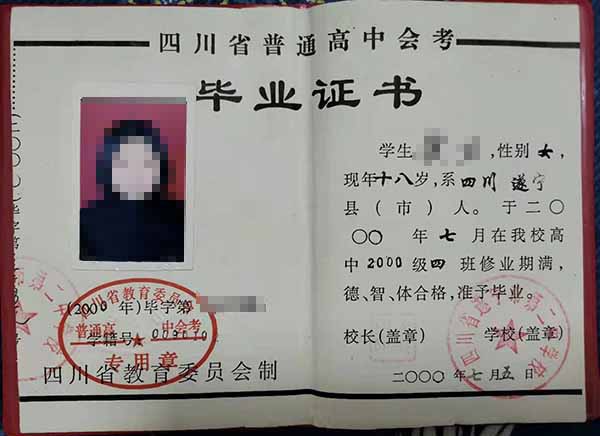 四川省普通高中会考
毕业证书
学生 ,性别女,
现年十八岁,系四川遂宁
县(市)人。于二〇
〇〇年七月在我校高
中2000级四班修业期满,
德、智、体合格,准予毕业。
校长(盖章) 学校(盖章)
二〇〇〇年七月五日
(2000年)毕字第
学籍号
四川省教育委员会
普通高中会考
专用章
四川省教育委员会制